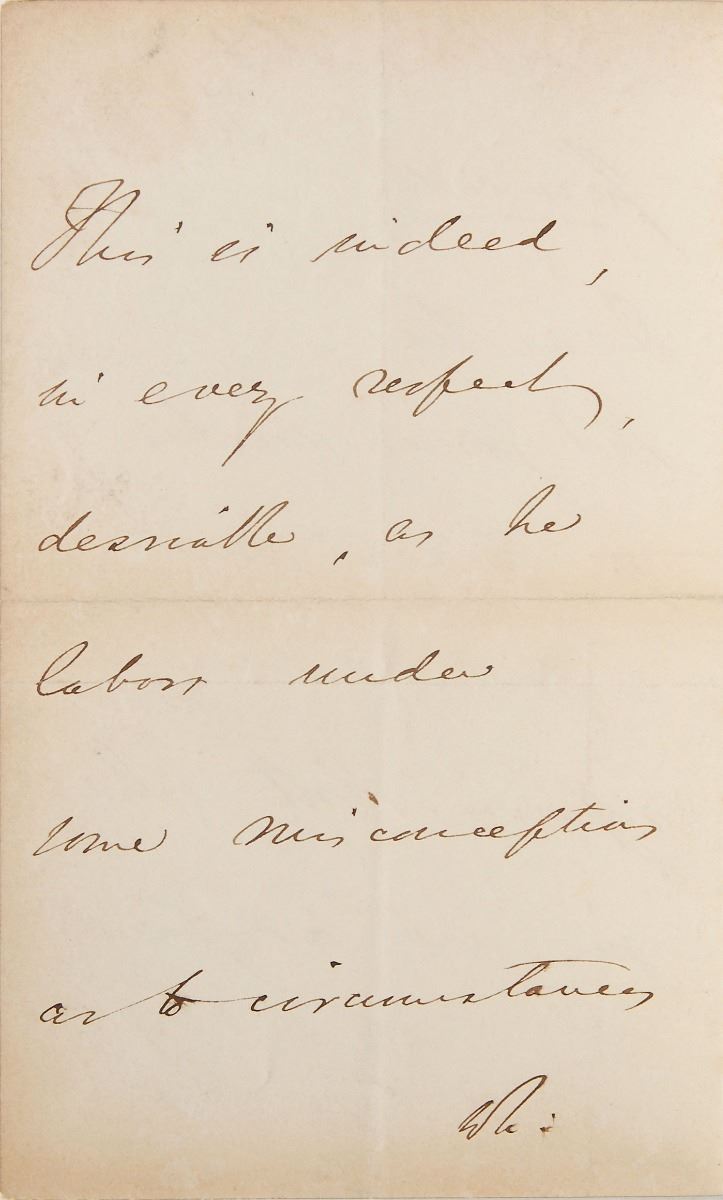 This is indeed,
in every respect,
desirable, as he
labors under
some misconception
as to circumstances
wh: